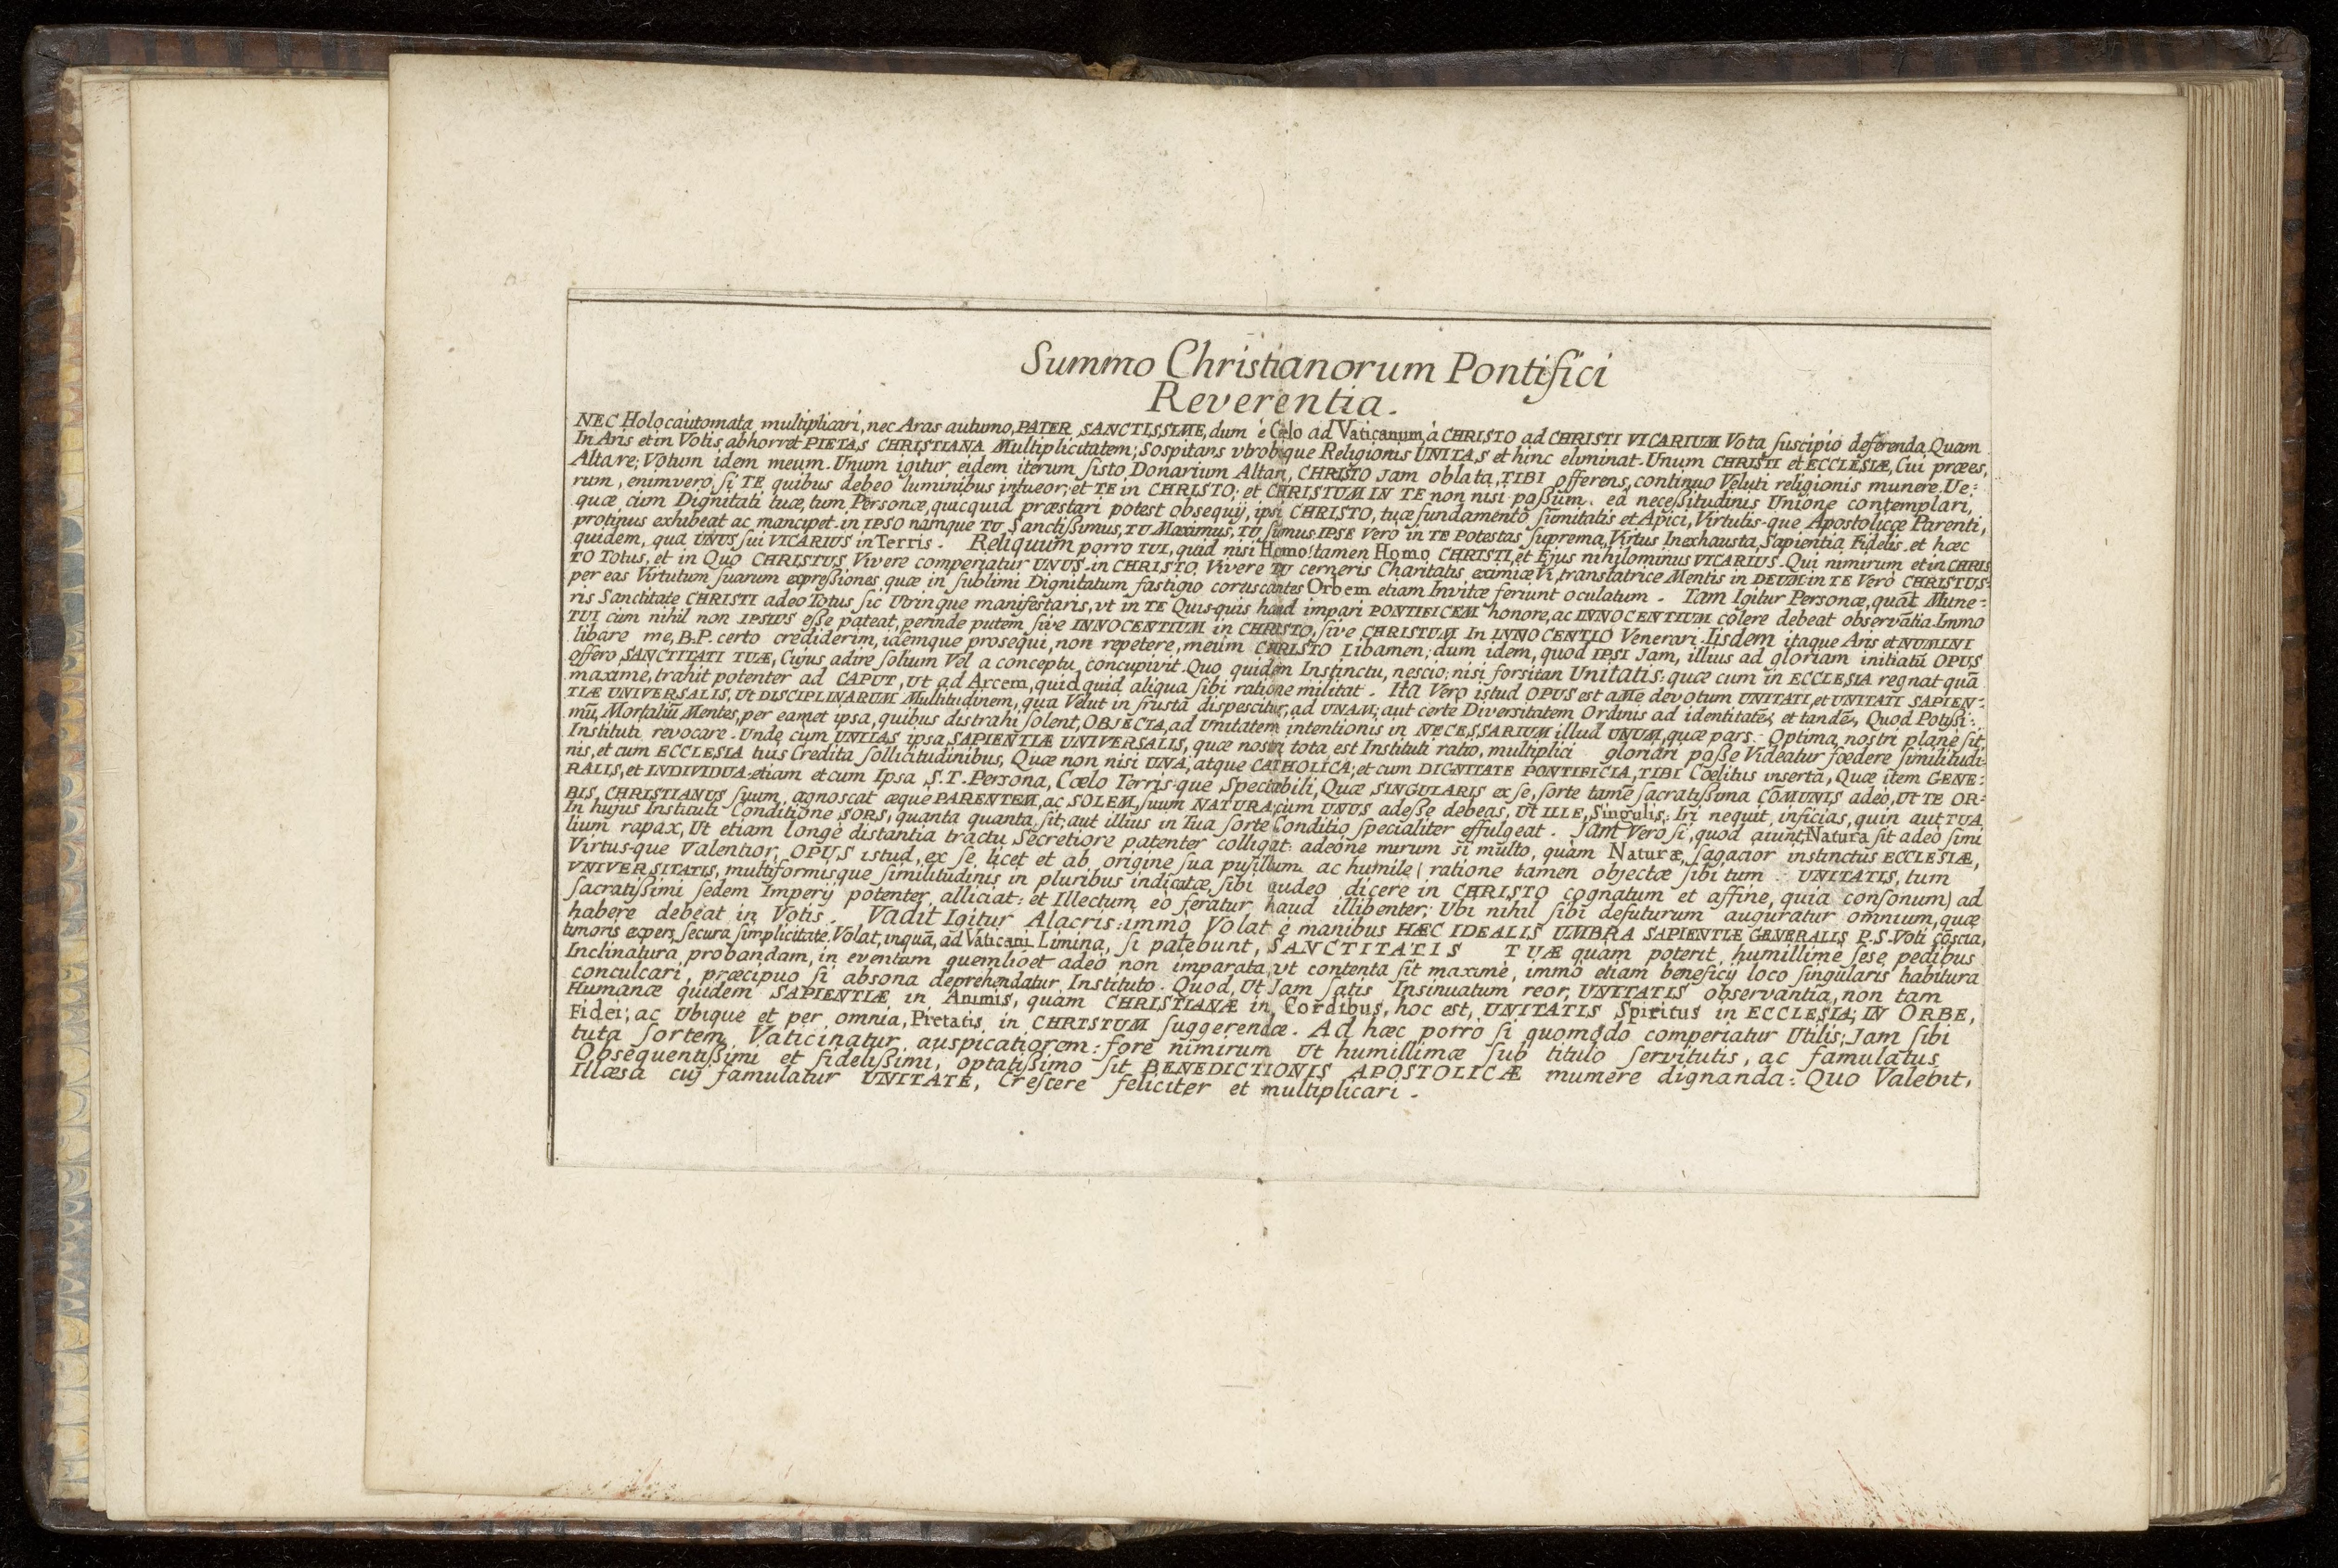 Summo Christianorum Pontifici
Reverentia.
NEC Holocautomata multiplicari, nec Aras autumo, PATER SANCTISSIME, dum è Cælo ad Vaticanum, à CHRISTO ad CHRISTI VICARIUM Vota suscipio deferenda. Quam
In Aris et in Votis abhorret PIETAS CHRISTIANA Multiplicitatem; Sospitans vtrobique Religionis UNITAS et hinc eliminat. Unum CHRISTI et ECCLESIÆ, Cui præes,
Altare; Votum idem meum. Unum igitur eidem iterum sisto Donarium Altari, CHRISTO Jam oblata, TIBI offerens, continuo Veluti religionis munere. Ue:
rum, enimvero, si TE quibus debeo luminibus intueor; et TE in CHRISTO; et CHRISTUM IN TE non nisi possum. eâ necessitudinis Unione contemplari,
quæ cùm Dignitati tuæ, tum Personæ, quicquid præstari potest obsequij, ipsi CHRISTO, tuæ fundamentô firmitatis et Apici, Virtutis-que Apostolicæ Parenti,
protinus exhibeat ac mancipet. in IPSO namque TU Sanctissimus, TU Maximus, TU sumus. IPSE Vero in TE Potestas suprema, Virtus Inexhausta, Sapientia Fidelis. et hæc
quidem, qua UNUS sui VICARIUS in Terris. Reliquum porro TUI, quid nisi Homo? tamen Homo CHRISTI, et Ejus nihilominus VICARIUS. Qui nimirum et in CHRIS
TO Totus, et in Quo CHRISTUS Vivere comperiatur UNUS. in CHRISTO Vivere TU cerneris Charitatis eximiæ Vi, translatrice Mentis in DEUM: in TE Verò CHRISTUS:
per eas Virtutum suarum expressiones, quæ in sublimi Dignitatum fastigio coruscantes Orbem etiam Invitæ feriunt oculatum. Iam Igitur Personæ, quàt Mune:
ris Sanctitate CHRISTI adeo Totus sic Utrinque manifestaris, vt in TE Quis-quis haud impari PONTIFICEM honore, ac INNOCENTIUM colere debeat observãtia. Immo
TUI cùm nihil non IPSIUS esse pateat, perinde putem sive INNOCENTIUM in CHRISTO, sive CHRISTUM In INNOCENTIO Venerari. Iisdem itaque Aris et NUMINI
libare me, B.P. certo crediderim, idemque prosequi, non repetere, meum CHRISTO Libamen; dum idem, quod IPSI Jam, illius ad gloriam initiatũ OPUS
offero SANCTITATI TUÆ, Cujus adire solium Vel a conceptu concupivit. Quo quidem Instinctu, nescio; nisi forsitan Unitatis: quæ cum in ECCLESIA regnat quã
maxime, trahit potenter ad CAPUT, Ut ad Arcem, quid quid aliqua sibi ratione militat. Ita Vero istud OPUS est a Me devotum UNITATI, et UNITATI SAPIEN-
TIÆ UNIVERSALIS, Ut DISCIPLINARUM Multitudinem, qua Velut in frusta dispescitur, ad UNAM; aut certe Diversitatem Ordinis ad identitatẽ; et tandẽ, Quod Potissi:
mũ, Mortaliũ Mentes, per eamet ipsa, quibus distrahi solent, OBJECTA, ad Unitatem intentionis in NECESSARIUM illud UNUM, quæ pars: Optima nostri planè sit
Instituti revocare. Unde cum UNITAS ipsa SAPIENTIÆ UNIVERSALIS, quæ nostri tota est Instituti ratio, multiplici gloriari posse Videatur fœdere similitudi-
nis, et cum ECCLESIA tuis Credita sollicitudinibus, Quæ non nisi UNA, atque CATHOLICA; et cum DIGNITATE PONTIFICIA, TIBI Cœlitus insertâ, Quæ item GENE:
RALIS, et INDIVIDUA: etiam et cum Ipsa S.T. Persona, Cœlo Terris-que Spectabili, Quæ SINGULARIS ex se, sorte tamẽ sacratissima COMUNIS adeo, Ut TE OR-
BIS CHRISTIANUS suum agnoscat æque PARENTEM, ac SOLEM, suum NATURA; cum UNUS adesse debeas, Ut ILLE, Singulis; Iri nequit inficias, quin aut TUA
In hujus Instituti Conditione SORS, quanta quanta sit; aut illius in Tua sorte Conditio specialiter effulgeat. Jam Vero si, quod aiunt, Natura sit adeo simi
lium rapax, Ut etiam longè distantia tractu Secretiore patenter colligat: adeóne mirum si multo, quàm Naturæ, sagacior instinctus ECCLESIÆ,
Virtus-que Valentior, OPUS istud, ex se licet et ab origine sua pusillum ac humile ( ratione tamen objectæ sibi tum UNITATIS, tum
VNIVERSITATIS, multiformisque similitudinis in pluribus indicatæ, sibi audeo dicere in CHRISTO cognatum et affine, quia consonum) ad
sacratissimi sedem Imperij potenter alliciat: et Illectum eo feratur haud illibenter; Ubi nihil sibi defuturum auguratur omnium, quæ
habere debeat in Votis. Vadit Igitur Alacris: immò Volat è manibus HÆC IDEALIS UMBRA SAPIENTIÆ GENERALIS P.S. Voti cõscia,
timoris expers, secura simplicitate. Volat, inquã, ad Vaticani Limina, si patebunt, SANCTITATIS TUÆ quàm poterit humillime sese pedibus
Inclinatura probandam, in eventum quemlibet adeo non imparata, vt contenta sit maximè, immò etiam beneficij loco singularis habitura
conculcari, præcipuo si absona deprehendatur Instituto. Quod, Ut Jam satis Insinuatum reor, UNITATIS observantia, non tam
Humanæ quidem SAPIENTIÆ in Animis, quàm CHRISTIANÆ in Cordibus, hoc est, UNITATIS Spiritus in ECCLESIA; IN ORBE,
Fidei; ac Ubique et per omnia, Pietatis in CHRISTUM suggerendæ. Ad hæc porro si quomodo comperiatur Utilis; Jam sibi
tuta sortem Vaticinatur auspicatiorem: fore nimirum Ut humillimæ sub titulo servitutis, ac famulatus
Obsequentissimi et fidelissimi, optatissimo sit BENEDICTIONIS APOSTOLICÆ munere dignanda: Quo Valebit,
Illæsa cuj famulatur UNITATE, Crescere feliciter et multiplicari.